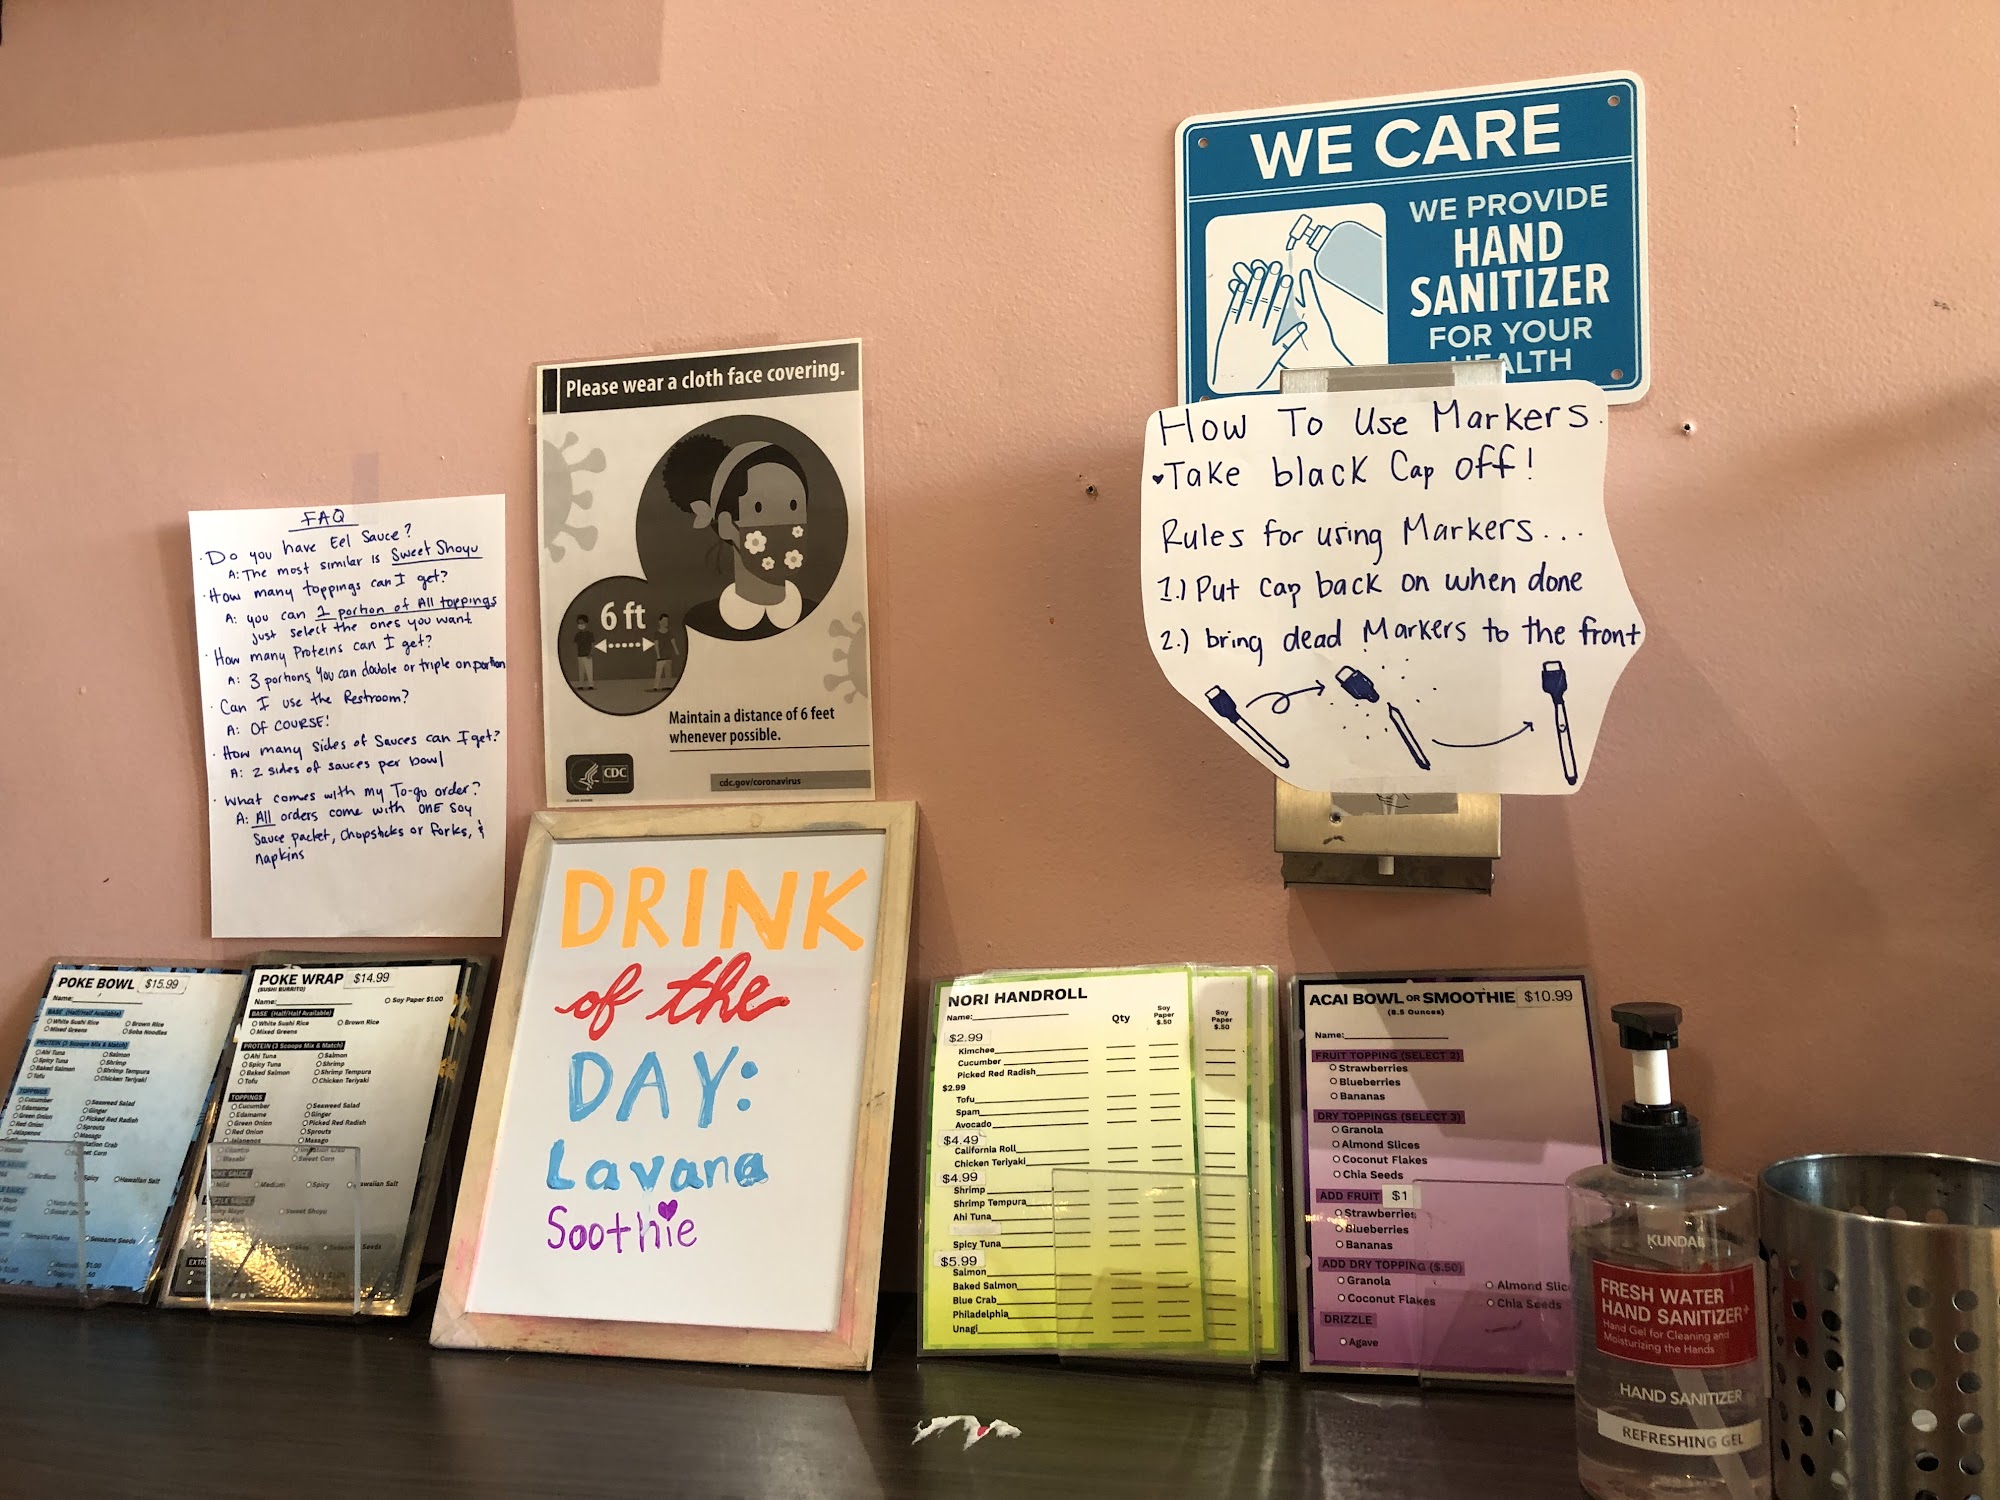 WE CARE
WE PROVIDE
HAND
SANITIZER
FOR YOUR
HEALTH
How To Use Markers.
Take black Cap off!
Rules for using Markers...
1.) Put cap back on when done
2.) bring dead Markers to the front
Please wear a cloth face covering.
6 ft
Maintain a distance of 6 feet
whenever possible.
CDC
cdc.gov/coronavirus
FAQ
· Do you have Eel Sauce?
A: The most similar is Sweet Shoyu
· How many toppings can I get?
A: you can 1 portion of All toppings
just select the ones you want
· How many Proteins can I get?
A: 3 portions, You can double or triple on portion
· Can I use the Restroom?
A: OF COURSE!
· How many sides of Sauces can I get?
A: 2 sides of sauces per bowl
· What comes with my To-go order?
A: All orders come with ONE Soy
Sauce packet, Chopsticks or Forks, &
Napkins
POKE BOWL $15.99
Name:
BASE (Half/Half Available)
White Sushi Rice Brown Rice
Mixed Greens Soba Noodles
PROTEIN (3 Scoops Mix & Match)
Ahi Tuna Salmon
Spicy Tuna Shrimp
Baked Salmon Shrimp Tempura
Tofu Chicken Teriyaki
TOPPINGS
Cucumber Seaweed Salad
Edamame Ginger
Green Onion Picked Red Radish
Red Onion Sprouts
Jalapenos Masago
Sweet Corn
Spicy Hawaiian Salt
Sesame Seeds
POKE WRAP $14.99
(SUSHI BURRITO)
Name: Soy Paper $1.00
BASE (Half/Half Available)
White Sushi Rice Brown Rice
Mixed Greens
PROTEIN (3 Scoops Mix & Match)
Ahi Tuna Salmon
Spicy Tuna Shrimp
Baked Salmon Shrimp Tempura
Tofu Chicken Teriyaki
TOPPINGS
Cucumber Seaweed Salad
Edamame Ginger
Green Onion Picked Red Radish
Red Onion Sprouts
Jalapenos Masago
Cilantro Imitation Crab
Wasabi Sweet Corn
POKE SAUCE
Mild Medium Spicy Hawaiian Salt
DRIZZLE SAUCE
Sweet Shoyu
Sesame Seeds
DRINK
of the
DAY:
Lavana
Soothie
NORI HANDROLL
Name: Qty Soy Paper $.50
$2.99
Kimchee
Cucumber
Picked Red Radish
$2.99
Tofu
Spam
Avocado
$4.49
California Roll
Chicken Teriyaki
$4.99
Shrimp
Shrimp Tempura
Ahi Tuna
Spicy Tuna
$5.99
Salmon
Baked Salmon
Blue Crab
Philadelphia
Unagi
Soy Paper $.50
ACAI BOWL OR SMOOTHIE $10.99
(8.5 Ounces)
Name:
FRUIT TOPPING (SELECT 2)
Strawberries
Blueberries
Bananas
DRY TOPPINGS (SELECT 3)
Granola
Almond Slices
Coconut Flakes
Chia Seeds
ADD FRUIT $1
Strawberries
Blueberries
Bananas
ADD DRY TOPPING ($.50)
Granola Almond Slic
Coconut Flakes Chia Seeds
DRIZZLE
Agave
KUNDAL
FRESH WATER
HAND SANITIZER+
Hand Gel for Cleaning and
Moisturizing the Hands
HAND SANITIZER
REFRESHING GEL